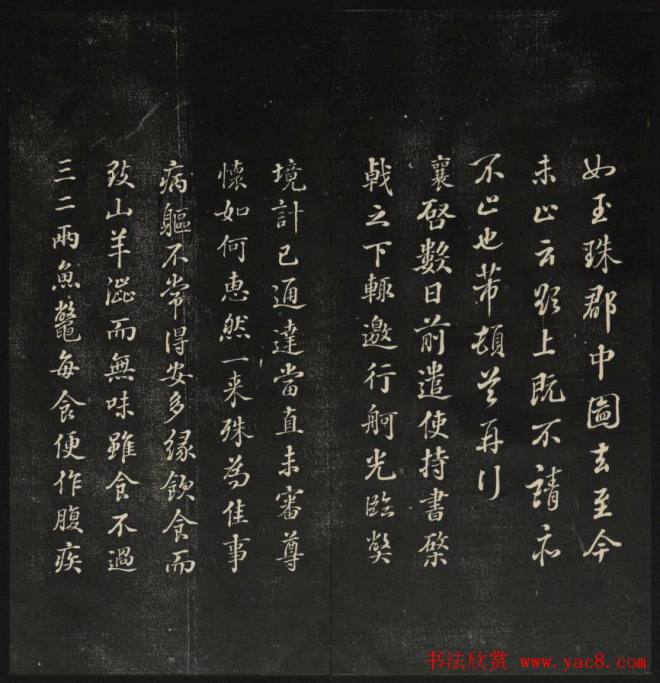 如玉珠郡中圖去至今
未𣥂云題上既不請亦
不𣥂也芾頓首再行
襄啓數日前遣使持書棨
戟之下輙邀行舸光臨獘
境計已通達當直未審尊
懷如何惠然一来殊為佳事
病軀不常得安多緣飲食而
致山羊澁而無味雖食不過
三二兩魚鼈每食便作腹疾
书法欣赏 www.yac8.com